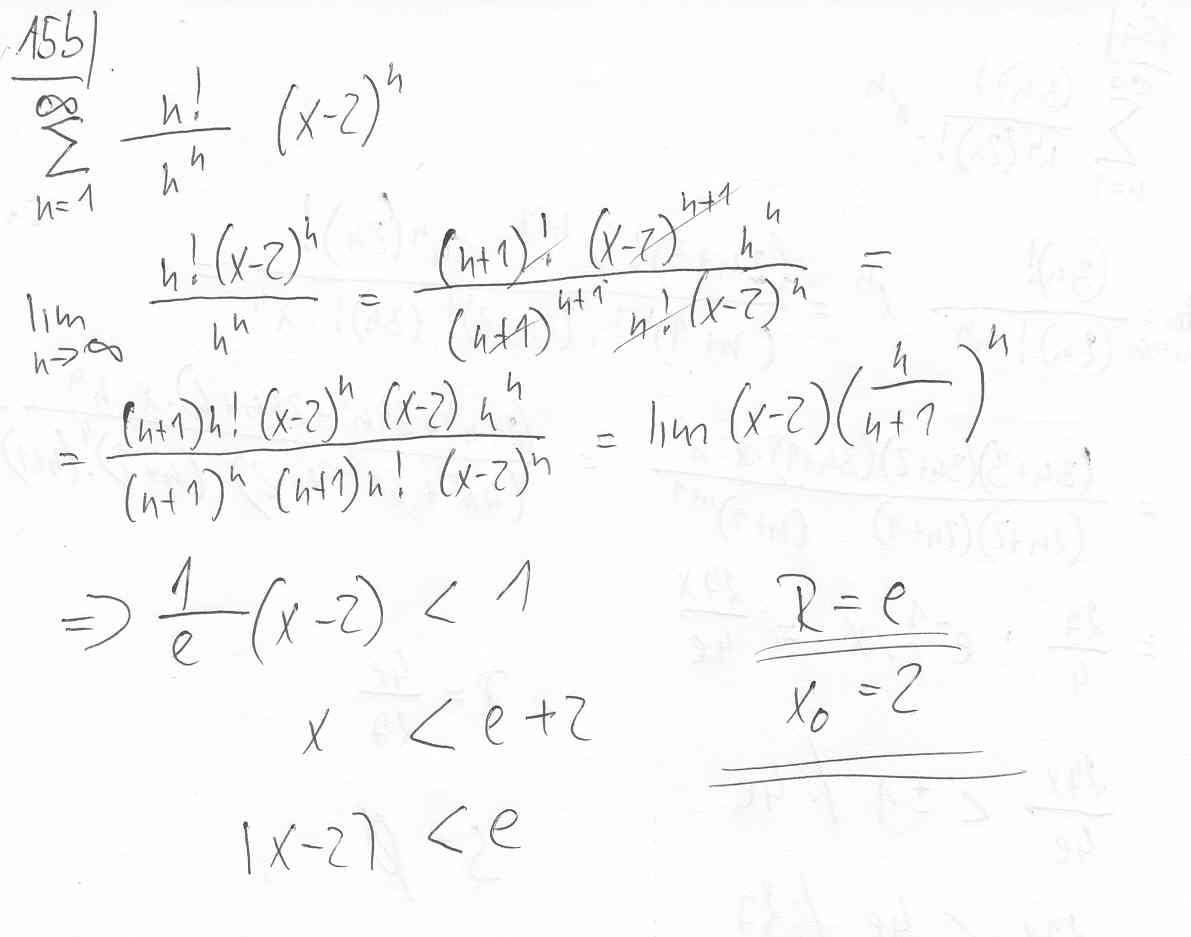 155)
∞
∑ n!/nⁿ (x-2)ⁿ
n=1
lim n!(x-2)ⁿ/nⁿ = (n+1)! (x-2)ⁿ⁺¹ nⁿ / (n+1)ⁿ⁺¹ n! (x-2)ⁿ =
n→∞
= (n+1)n! (x-2)ⁿ (x-2) nⁿ / (n+1)ⁿ (n+1)n! (x-2)ⁿ = lim (x-2)(n/(n+1))ⁿ
⇒ 1/e (x-2) < 1
x < e+2
|x-2| < e
R = e
x₀ = 2